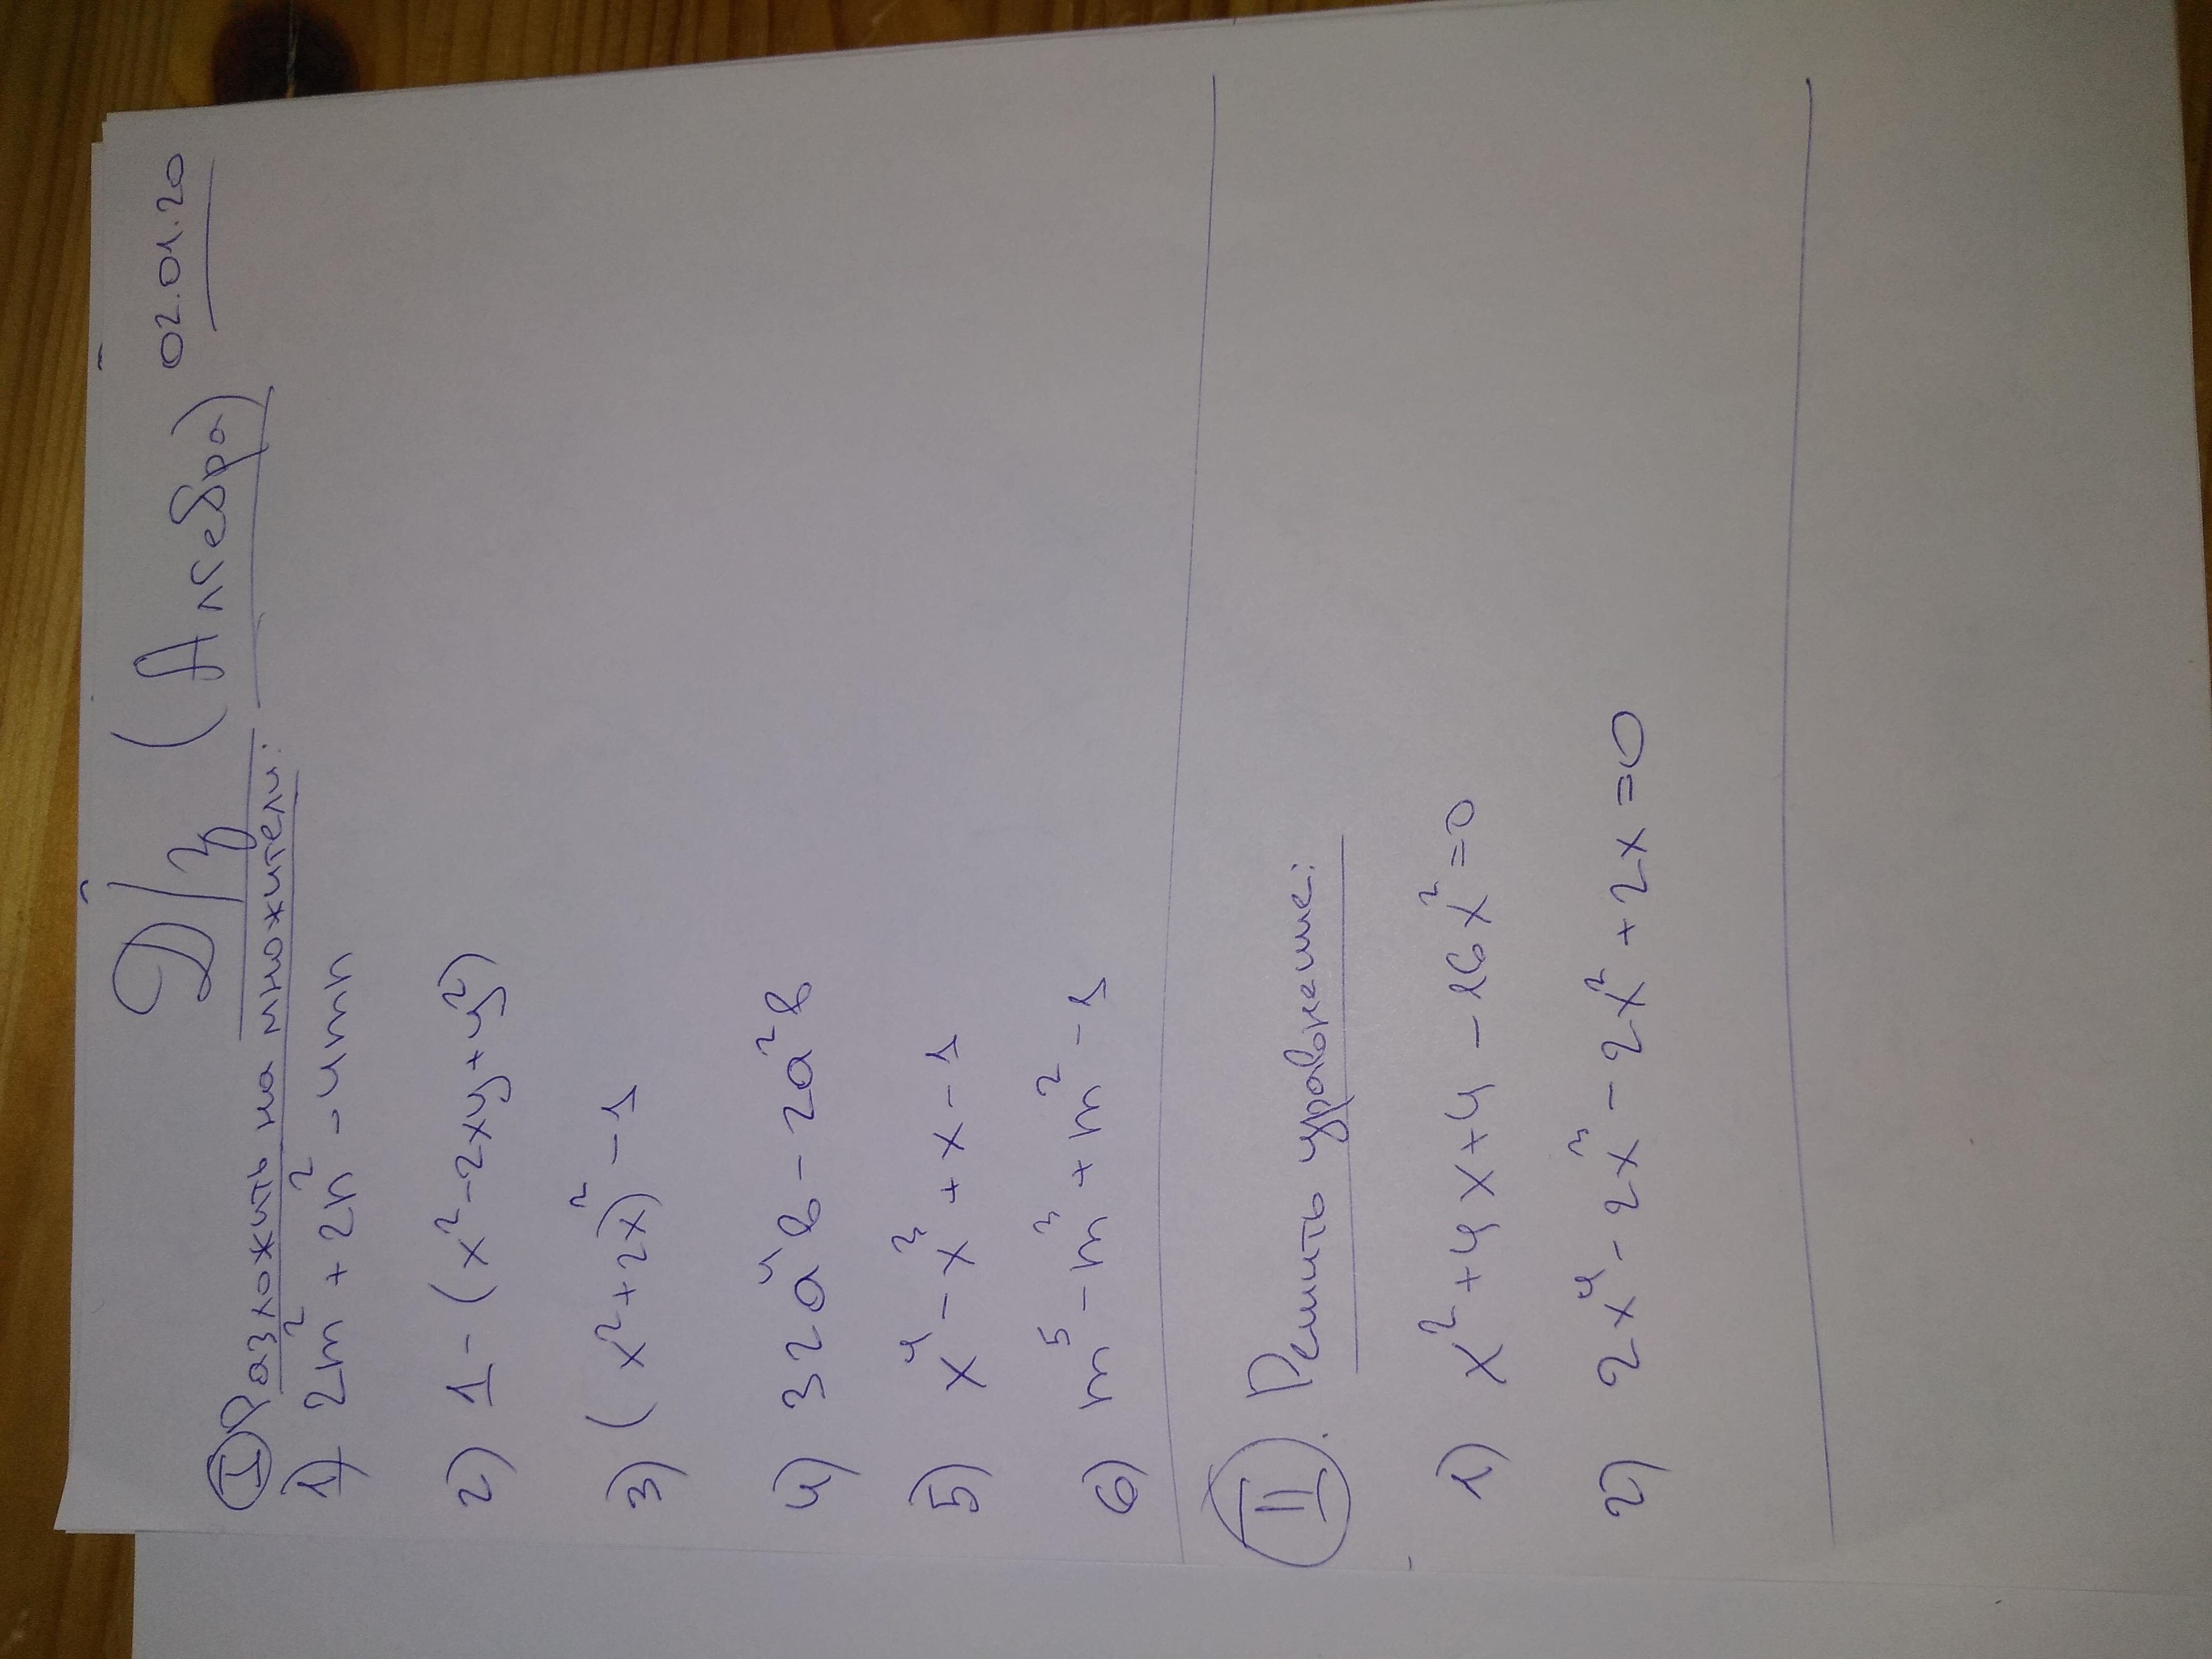 Д/з (Алгебра) 02.01.20
I Разложить на множители:
1) 2m² + 2n² - 4mn
2) 1 - (x² - 2xy + y²)
3) (x² + 2x)² - 1
4) 32a⁴b - 2a²b
5) x⁴ - x³ + x - 1
6) m⁵ - m³ + m² - 1
II. Решить уравнение:
1) x² + 4x + 4 - 16x² = 0
2) 2x⁴ - 2x³ - 2x² + 2x = 0